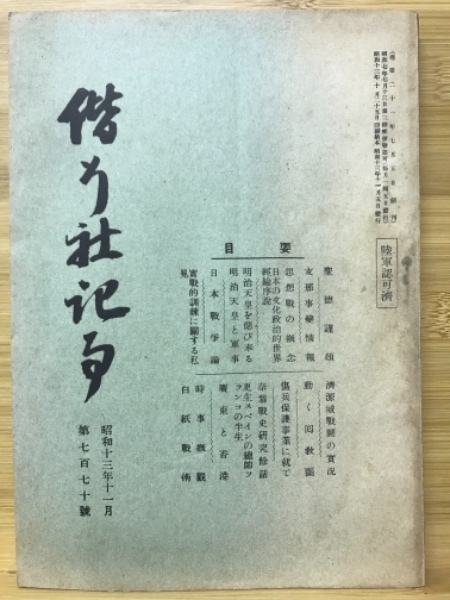 偕行社記事
昭和十三年十一月
第七百七十號
陸軍認可濟
要目
聖德謹頌
支那事變情報
思想戰の概念
日本の文化政治的世界
經綸序說
明治天皇を偲び奉る
明治天皇と軍事
日本戰爭論
實戰的訓練に關する私
見
濟源城戰鬪の實況
動く回敎圈
傷兵保護事業に就て
奈翁戰史硏究餘話
更生スペインの總帥フ
ランコの半生
廣東と香港
時事概觀
白紙戰術